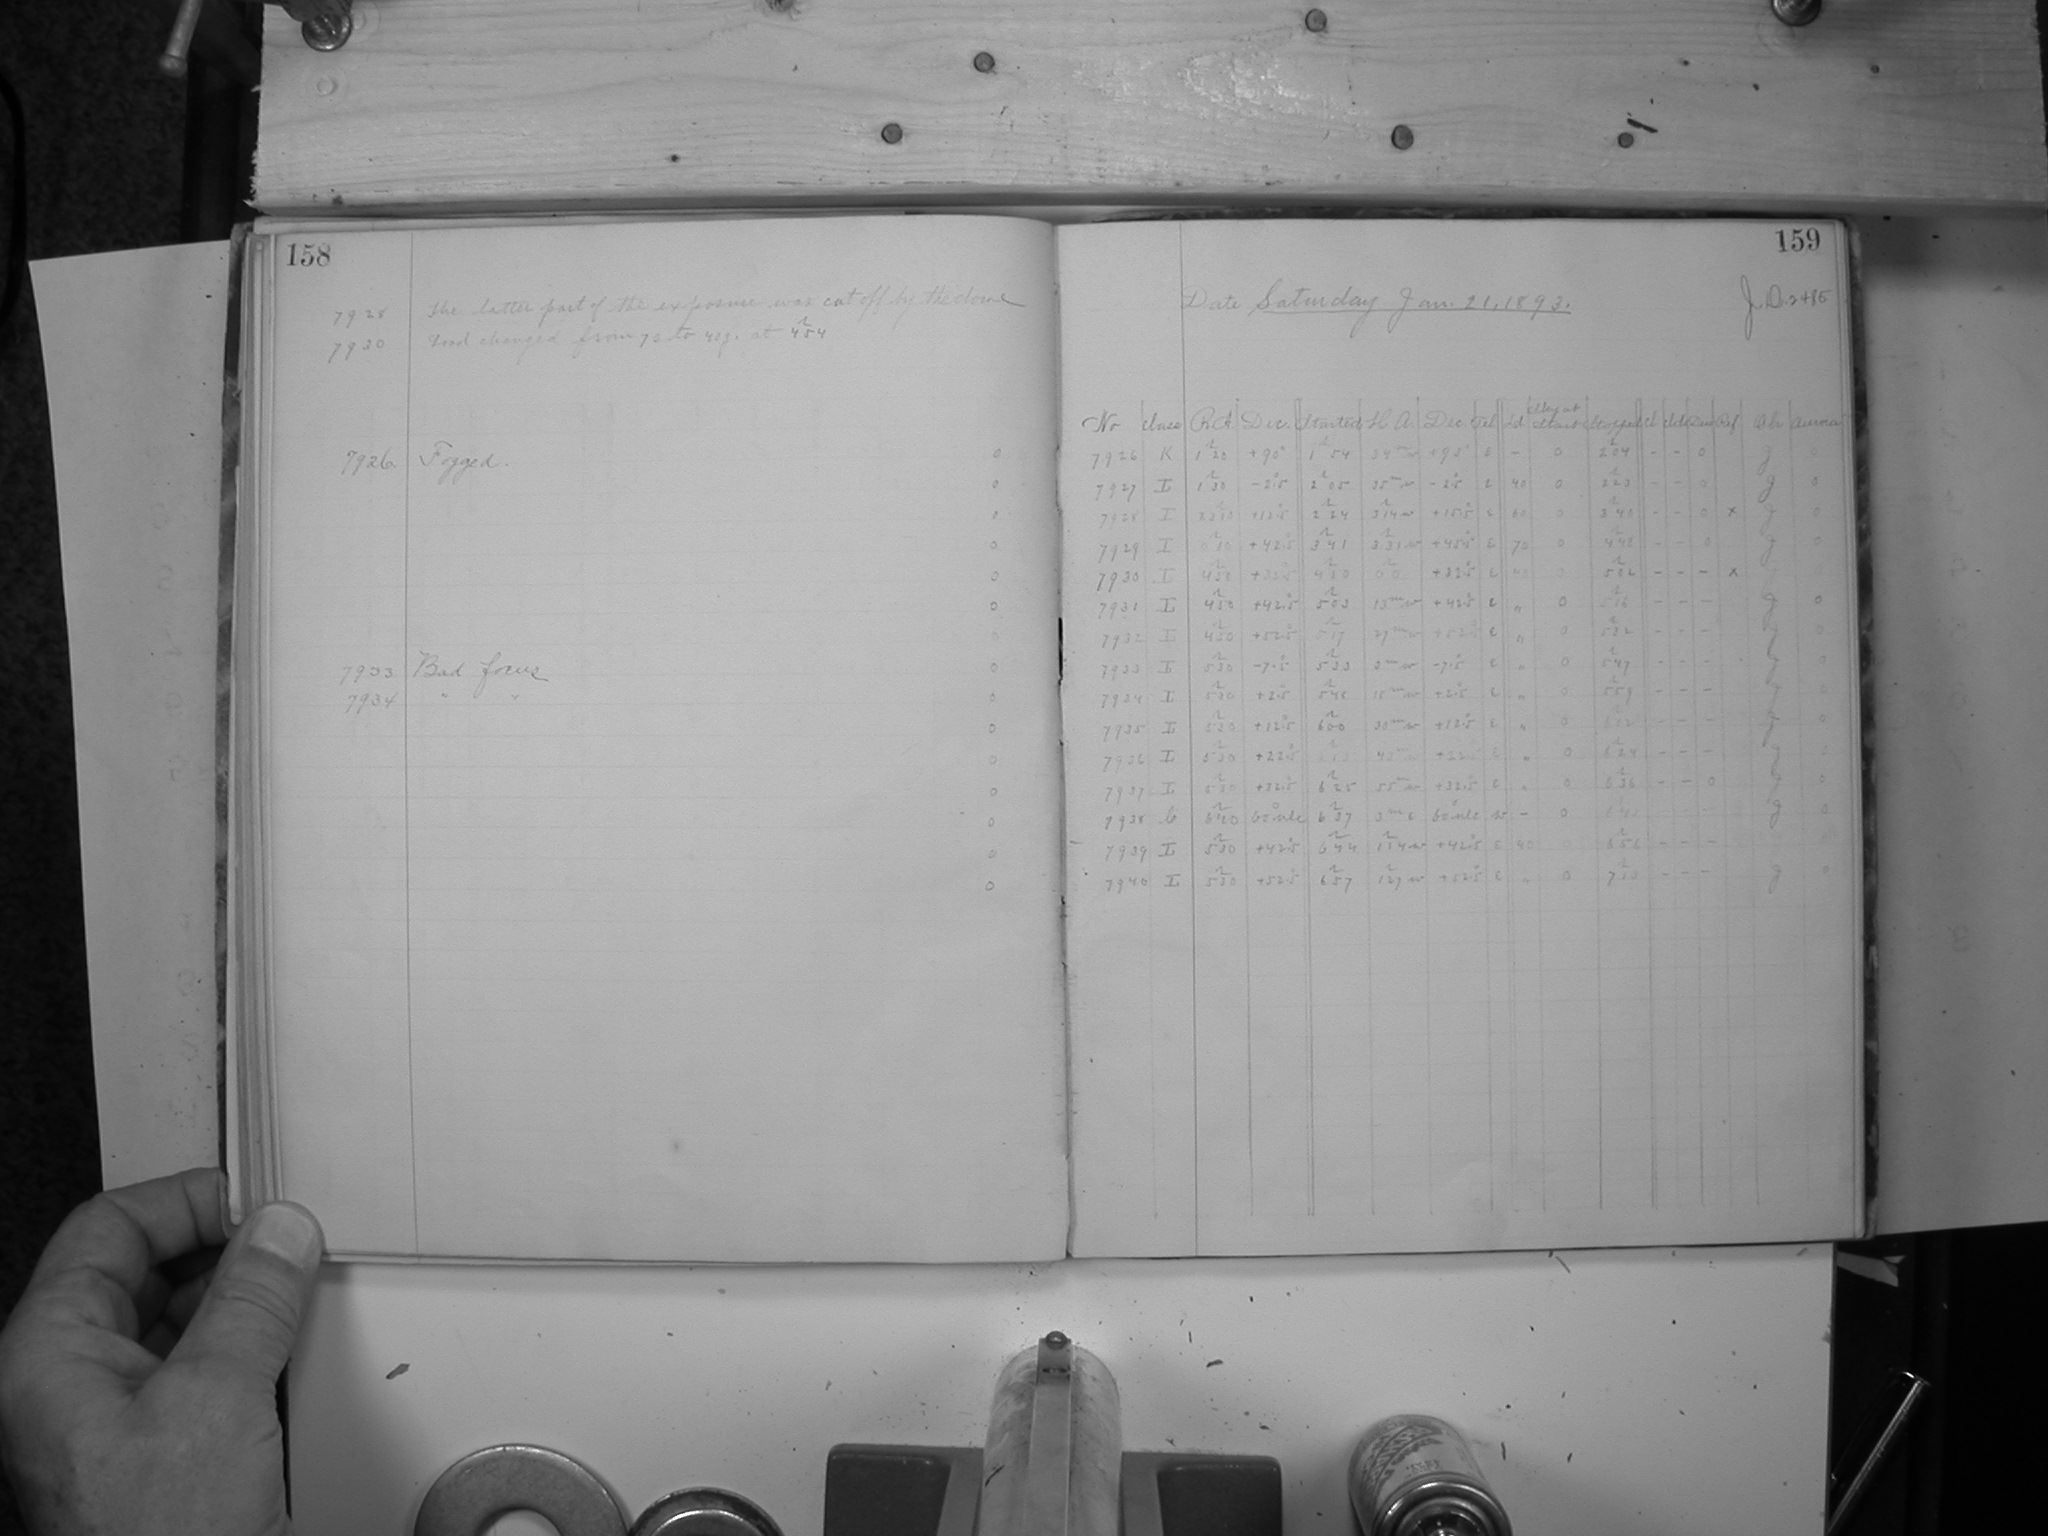 158
7928 The latter part of the exposure was cut off by the dome
7930 Load changed from 70 to 40g. at 4h54
7926 Fogged.
7933 Bad focus
7934 " "
159
Date Saturday Jan. 21, 1893.
J.D. 2485
No Class R.A. Dec. Started H.A. Dec. Tel Ld Sky at Start Stopped Cl Ref Ob Aurora
7926 K 1h20 +90° 1h54 34m w +90° E - 0 2h04 - - 0 g 0
7927 I 1h30 -2°.5 2h05 35m w -2°.5 E 40 0 2h23 - - 0 g 0
7928 I +12°.5 2h24 3h14 w +15°.5 E 60 0 3h40 - - 0 x g 0
7929 I 0h10 +42°.5 3h41 3h31 w +45°.5 E 70 0 4h48 - - 0 g 0
7930 I 4h30 +32°.5 4h50 +32°.5 E 5h02 - - - x
7931 I 4h50 +42°.5 5h03 13m w +42°.5 E " 0 5h16 - - - g 0
7932 I 4h50 +52°.5 5h17 27m w +52°.5 E " 0 5h32 - - - g 0
7933 I 5h30 -7°.5 5h33 3m w -7°.5 E " 0 5h47 - - - g 0
7934 I 5h30 +2°.5 5h48 18m w +2°.5 E " 0 5h59 - - - g 0
7935 I 5h30 +12°.5 6h00 30m w +12°.5 E " 0 6h12 - - - g 0
7936 I 5h30 +22°.5 6h13 43m w +22°.5 E " 0 6h24 - - - g 0
7937 I 5h30 +32°.5 6h25 55m w +32°.5 E " 0 6h36 - - 0 g 0
7938 C 6h40 6h37 3m E w - 0 - - g 0
7939 I 5h30 +42°.5 6h44 1h14 w +42°.5 E 40 6h56 - - -
7940 I 5h30 +52°.5 6h57 1h27 w +52°.5 E " 0 7h10 - - - g 0